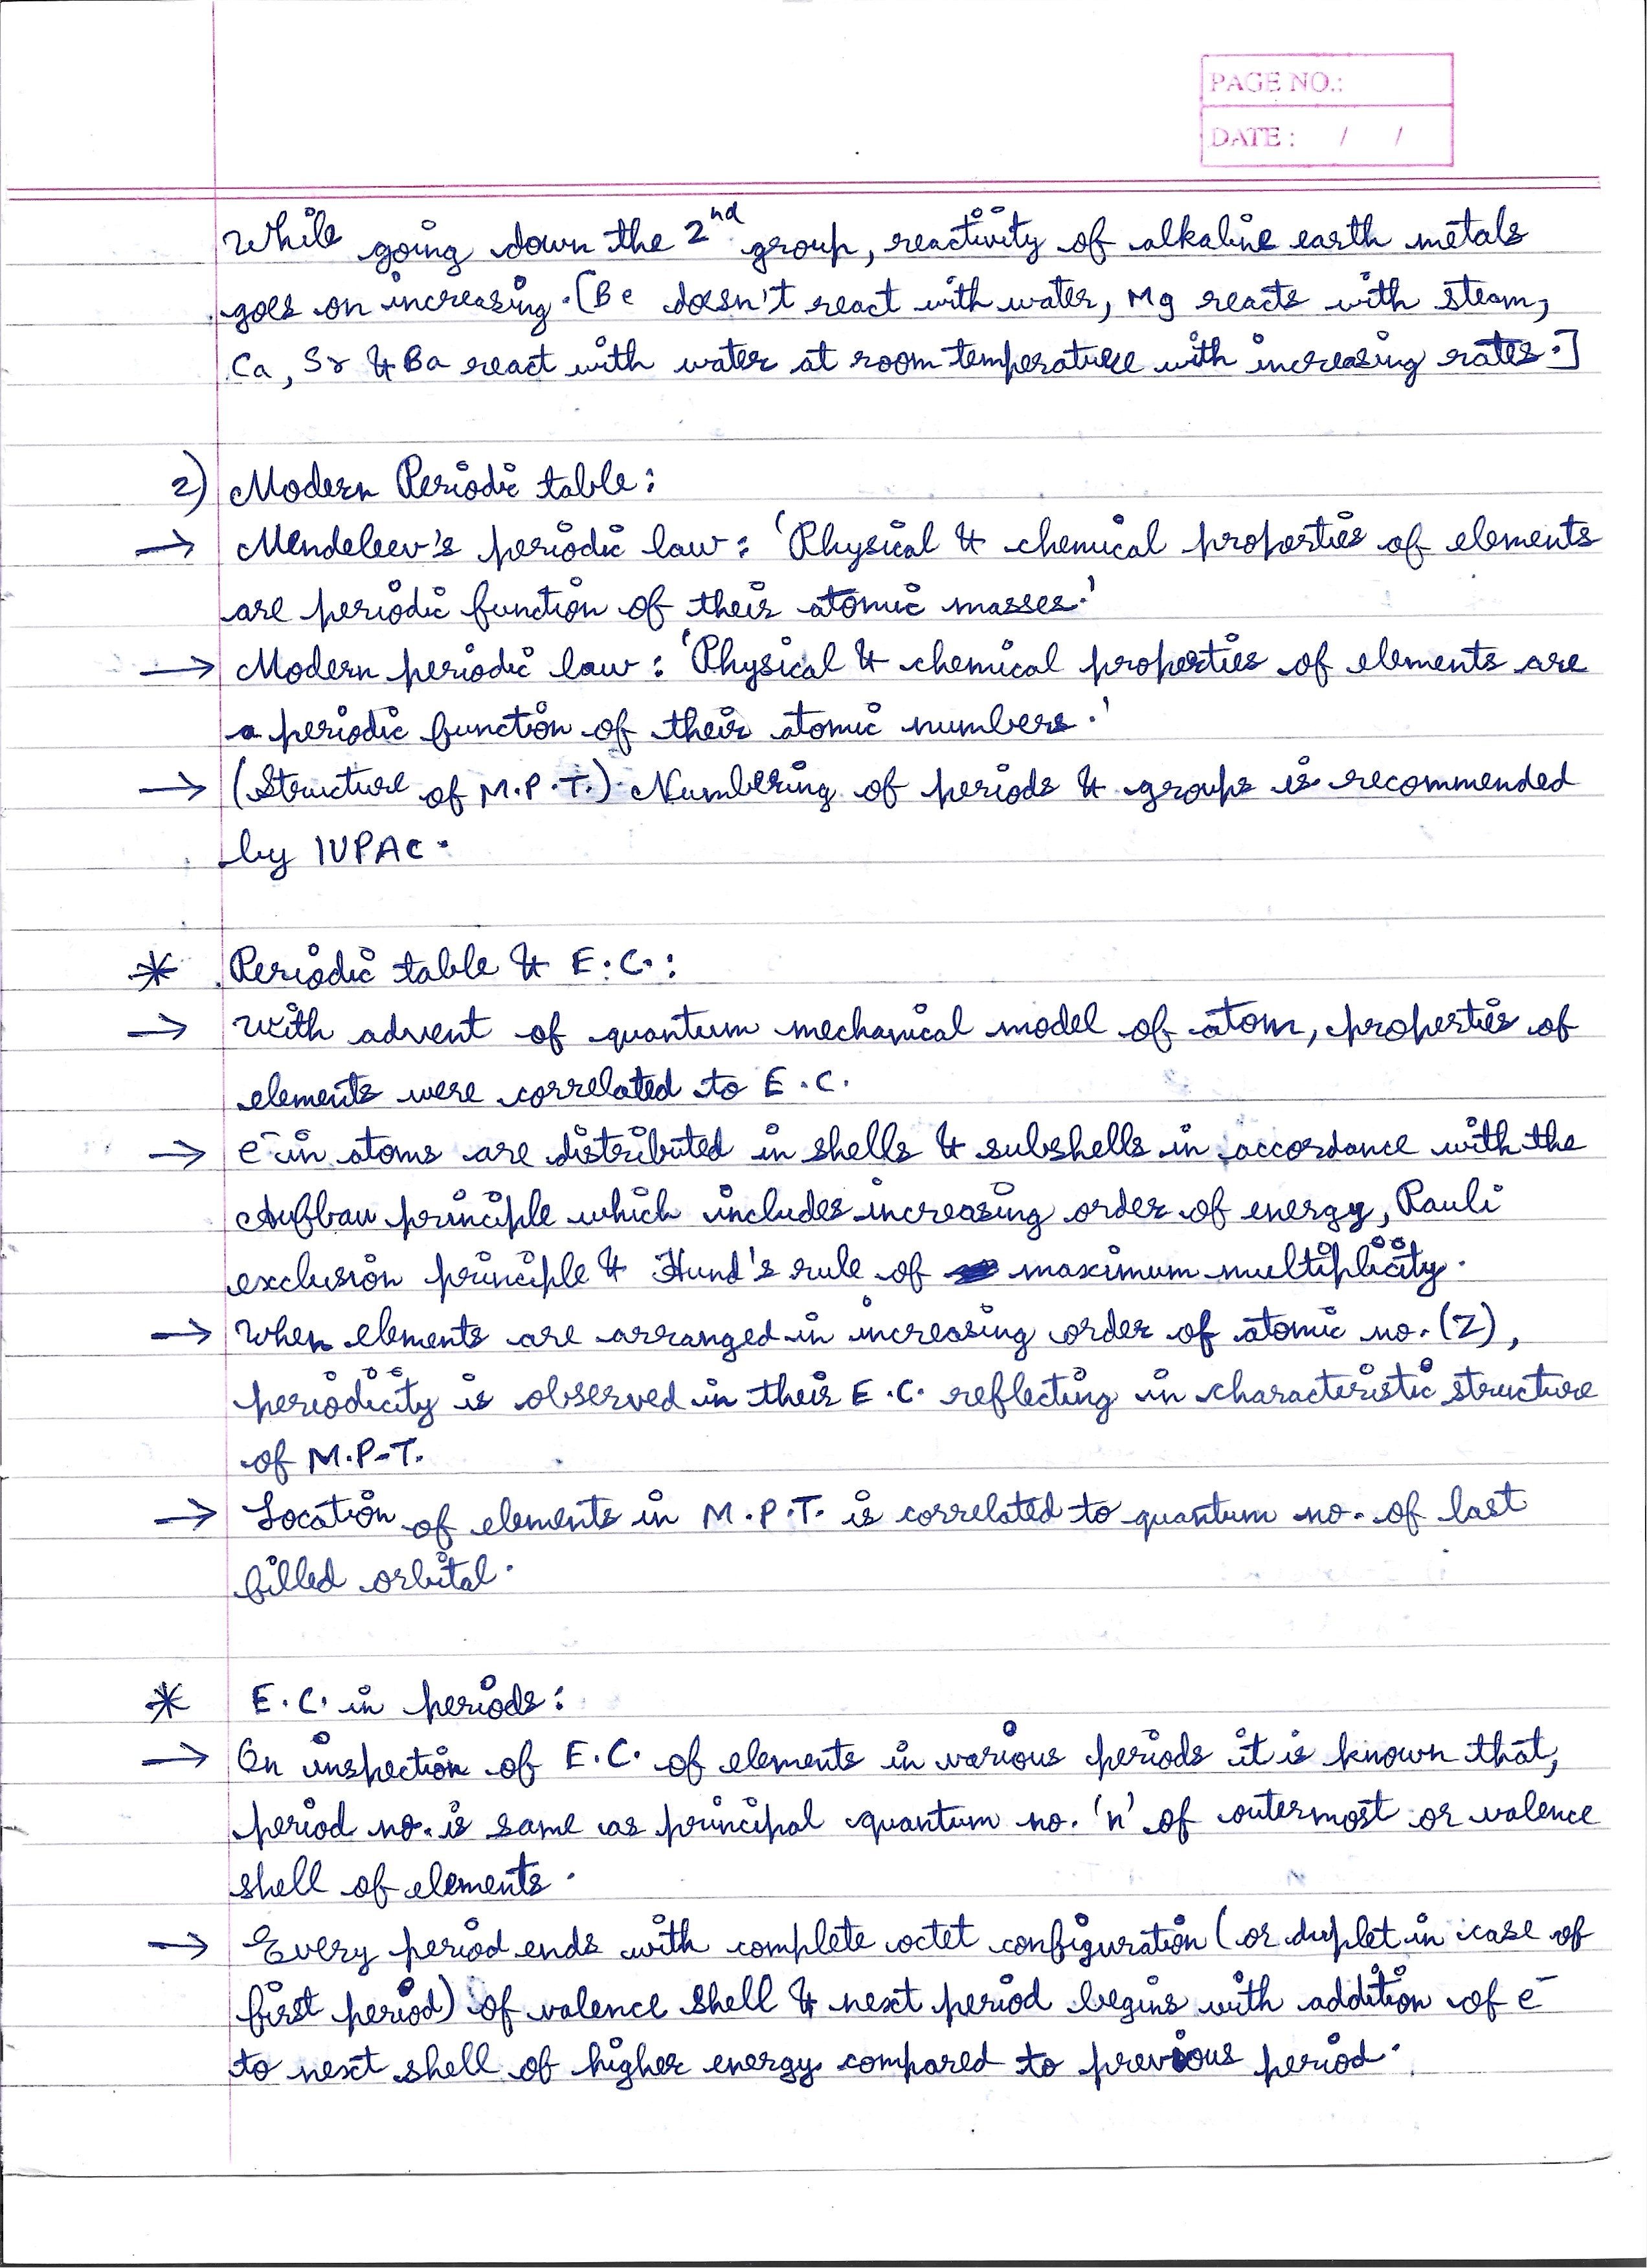 PAGE NO.:
DATE: / /
While going down the 2nd group, reactivity of alkaline earth metals
goes on increasing. [Be doesn't react with water, Mg reacts with steam,
Ca, Sr & Ba react with water at room temperature with increasing rates.]
2) Modern Periodic table:
→ Mendeleev's periodic law: 'Physical & chemical properties of elements
are periodic function of their atomic masses.'
→ Modern periodic law: 'Physical & chemical properties of elements are
a periodic function of their atomic numbers.'
→ (Structure of M.P.T.) Numbering of periods & groups is recommended
by IUPAC.
* Periodic table & E.C.:
→ With advent of quantum mechanical model of atom, properties of
elements were correlated to E.C.
→ e⁻ in atoms are distributed in shells & subshells in accordance with the
Aufbau principle which includes increasing order of energy, Pauli
exclusion principle & Hund's rule of maximum multiplicity.
→ When elements are arranged in increasing order of atomic no. (Z),
periodicity is observed in their E.C. reflecting in characteristic structure
of M.P.T.
→ Location of elements in M.P.T. is correlated to quantum no. of last
filled orbital.
* E.C. in periods:
→ On inspection of E.C. of elements in various periods it is known that,
period no. is same as principal quantum no. 'n' of outermost or valence
shell of elements.
→ Every period ends with complete octet configuration (or duplet in case of
first period) of valence shell & next period begins with addition of e⁻
to next shell of higher energy compared to previous period.